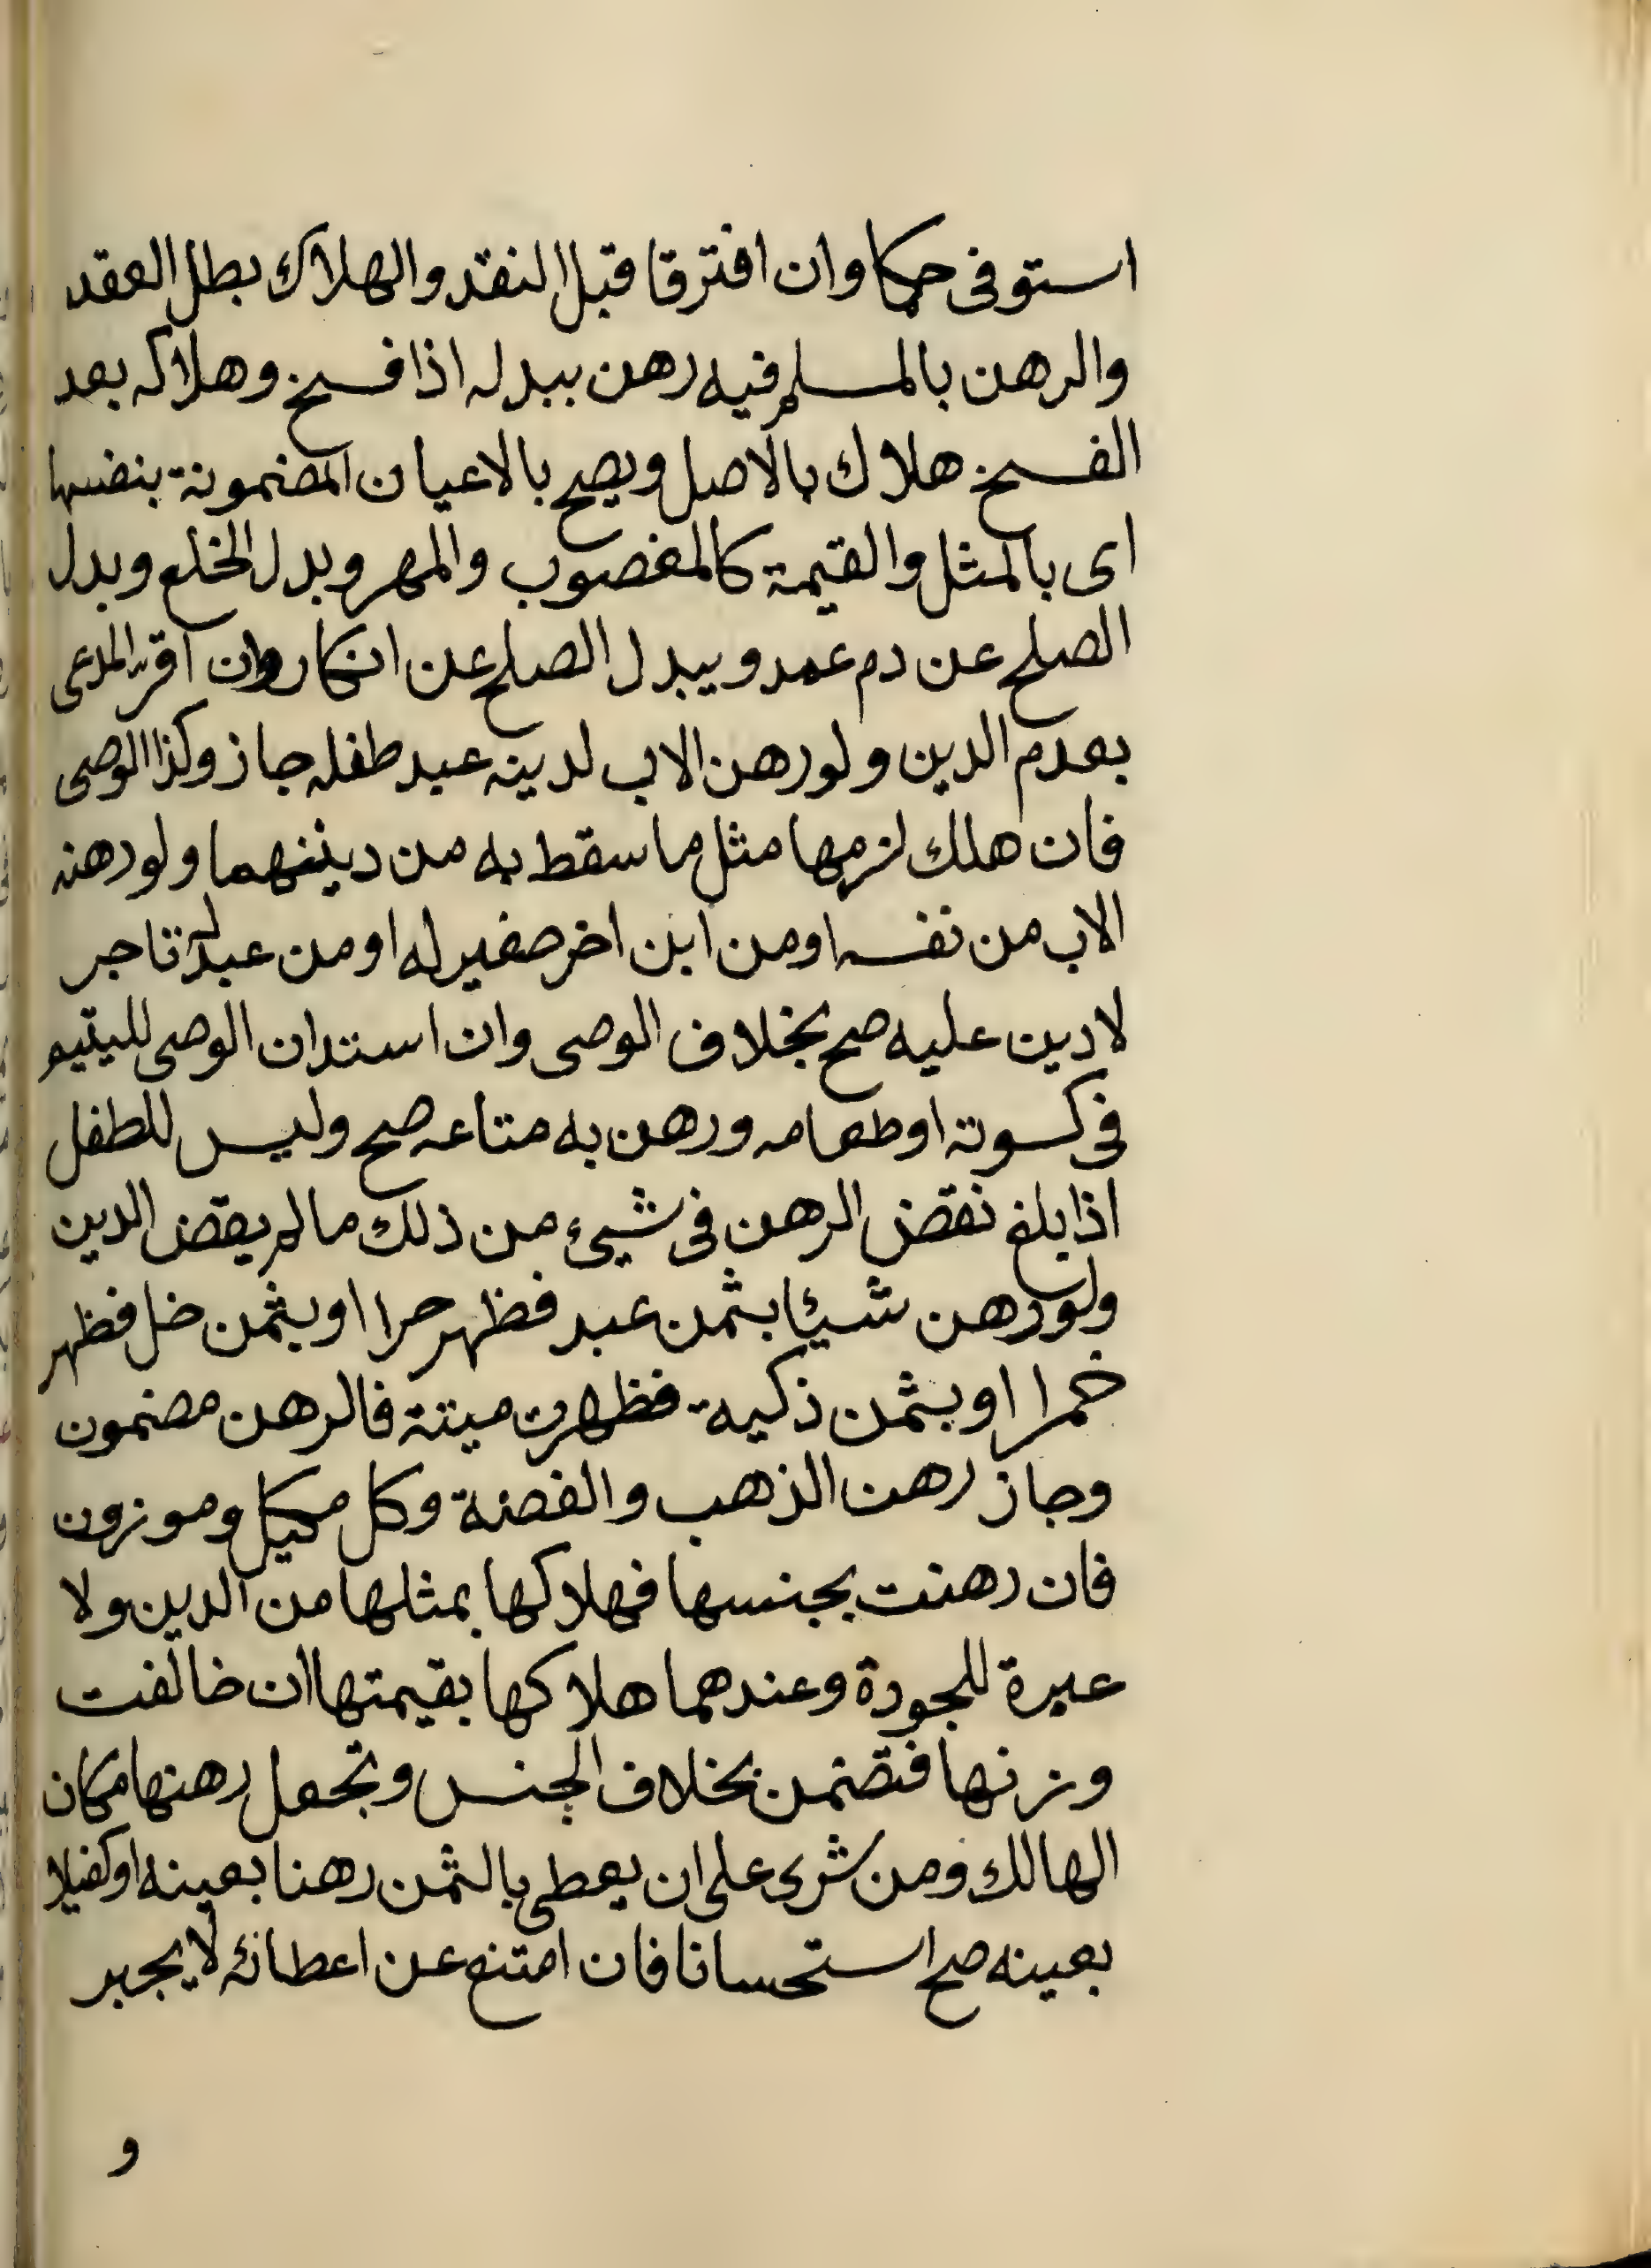 استوفى حكما وان افترقا قبل النقد والهلاك بطل العقد
والرهن بالمسلم فيه رهن ببدله اذا فسخ وهلاكه بعد
الفسخ هلاك بالاصل ويصح بالاعيان المضمونة بنفسها
اى بالمثل والقيمة كالمغصوب والمهر وبدل الخلع وبدل
الصلح عن دم عمد وببدل الصلح عن انكار وان اقر المدعى
بعدم الدين ولو رهن الاب لدينه عبد طفله جاز وكذا الوصى
فان هلك لزمها مثل ما سقط به من دينهما ولو رهنه
الاب من نفسه او من ابن اخر صغير له او من عبد له تاجر
لا دين عليه صح بخلاف الوصى وان استدان الوصى لليتيم
فى كسوته او طعامه ورهن به متاعه صح وليس للطفل
اذا بلغ نقض الرهن فى شيئ من ذلك ما لم يقض الدين
ولو رهن شيئا بثمن عبد فظهر حرا او بثمن خل فظهر
خمرا او بثمن ذكية فظهرت ميتة فالرهن مضمون
وجاز رهن الذهب والفضة وكل مكيل وموزون
فان رهنت بجنسها فهلاكها بمثلها من الدين ولا
عبرة للجودة وعندهما هلاكها بقيمتها ان خالفت
وزنها فتضمن بخلاف الجنس وتجعل رهنها مكان
الهالك ومن شرى على ان يعطى بالثمن رهنا بعينه او كفيلا
بعينه صح استحسانا فان امتنع عن اعطائه لا يجبر
و